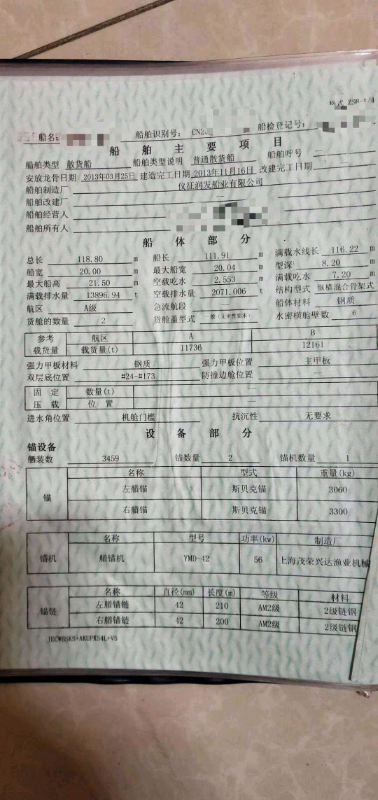 格式 ZSR-1/4
船名: 船舶识别号: CN20 船检登记号:
船 舶 主 要 项 目
船舶类型 散货船 船舶类型说明 普通散货船 船舶呼号
安放龙骨日期 2013年03月25日 建造完工日期 2013年11月16日 改建完工日期
船舶制造厂 仪征润发船业有限公司
船舶改建厂
船舶经营人
船舶所有人
船 体 部 分
总长 118.80 m 船长 111.91 m 满载水线长 116.22 m
船宽 20.00 m 最大船宽 20.04 m 型深 8.20 m
最大船高 21.50 m 空载吃水 2.553 m 满载吃水 7.20 m
满载排水量 13896.94 t 空载排水量 2071.006 t 结构型式 纵横混合骨架式
航区 A级 急流航段 船体材料 钢质
货舱的数量 2 货舱盖型式 水密横舱壁数 6
参考 航区 A B
载货量 载货量(t) 11736 12161
强力甲板材料 钢质 强力甲板位置 主甲板
双层底位置 #24-#173 防撞边舱位置
固 定 数量(t)
压 载 位 置
进水角位置 机舱门槛 抗沉性 无要求
设 备 部 分
锚设备
舾装数 3459 锚数量 2 锚机数量 1
名称 型式 重量(kg)
锚 左艏锚 斯贝克锚 3060
右艏锚 斯贝克锚 3300
名称 型号 功率(kw) 制造厂
锚机 艏锚机 YMD-42 56 上海茂荣兴达渔业机械
名称 直径(mm) 长度(m) 等级 材料
锚链 左艏锚链 42 210 AM2级 2级链钢
右艏锚链 42 200 AM2级 2级链钢